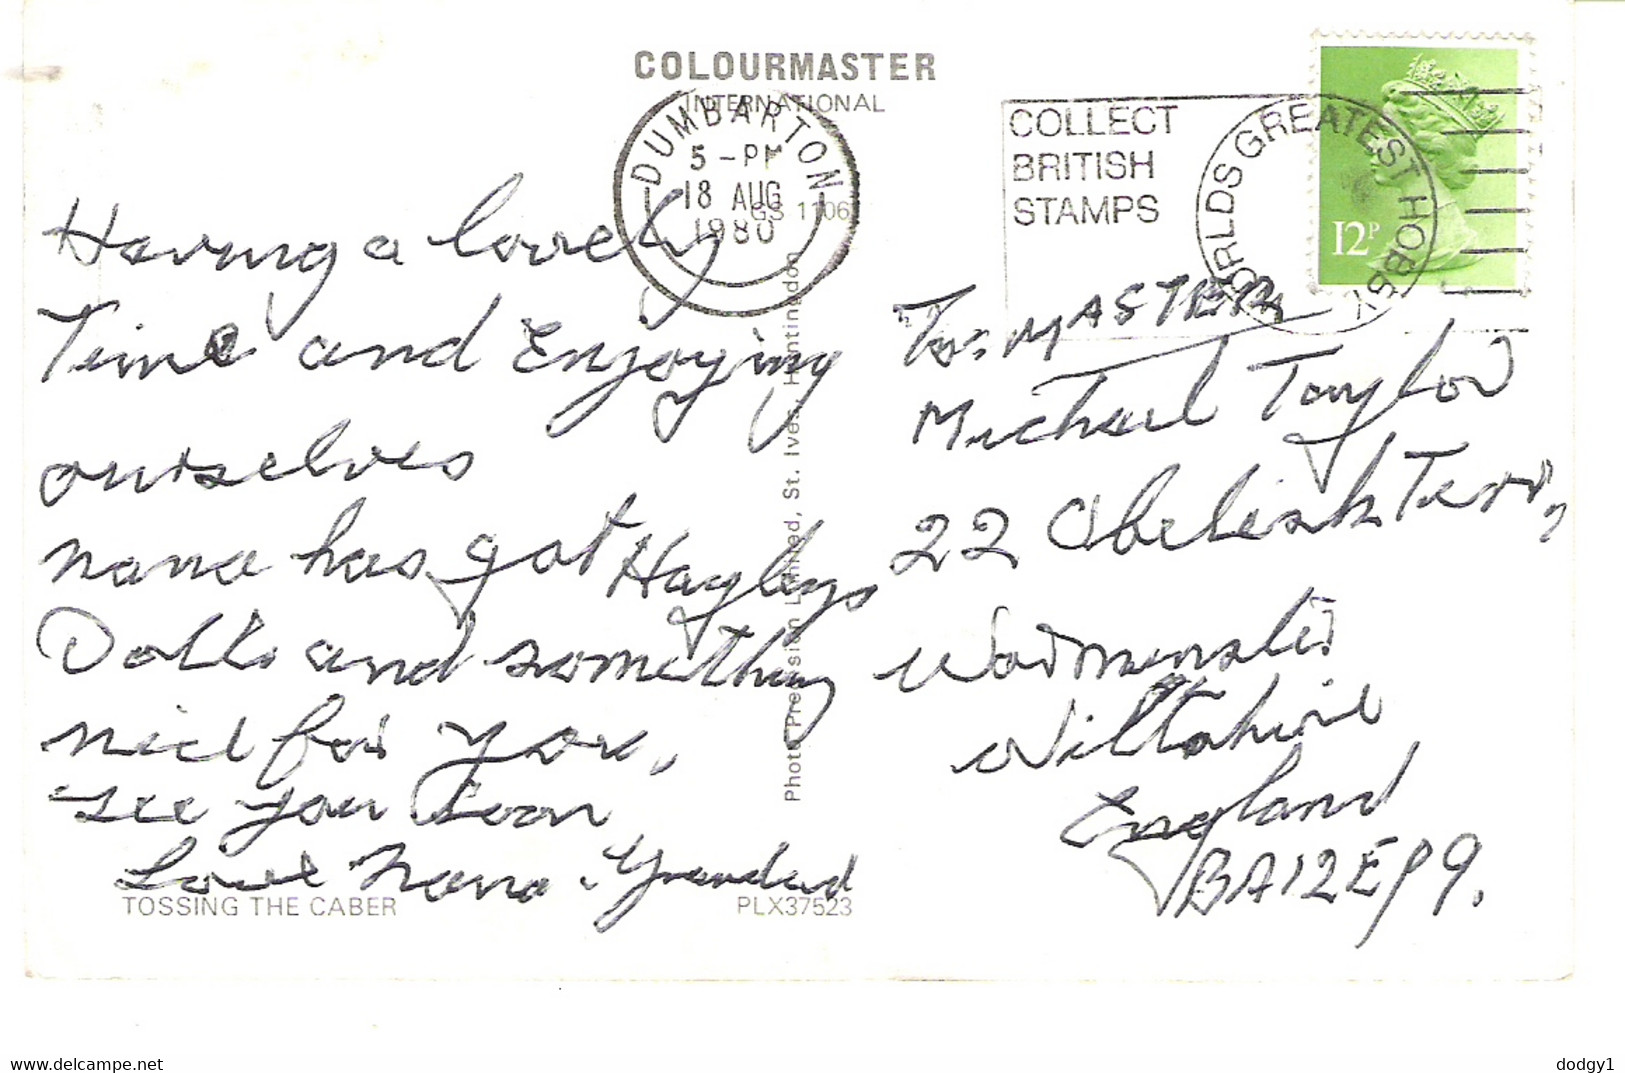 COLOURMASTER
INTERNATIONAL
DUMBARTON
5 - PM
18 AUG
1980
GS 1106
COLLECT
BRITISH
STAMPS
WORLDS GREATEST HOBBY
12P
Having a lovely
Time and Enjoying
ourselves
nana has got Hayleys
Dolls and something
nice for you.
see you soon
Love Nana. Grandad
TOSSING THE CABER
PLX37523
Photo Precision Limited, St. Ives, Huntingdon
To. MASTER
Michael Taylor
22 Obelisk Terr,
Warminster
Wiltshire
England
BA12E99.
www.delcampe.net
dodgy1